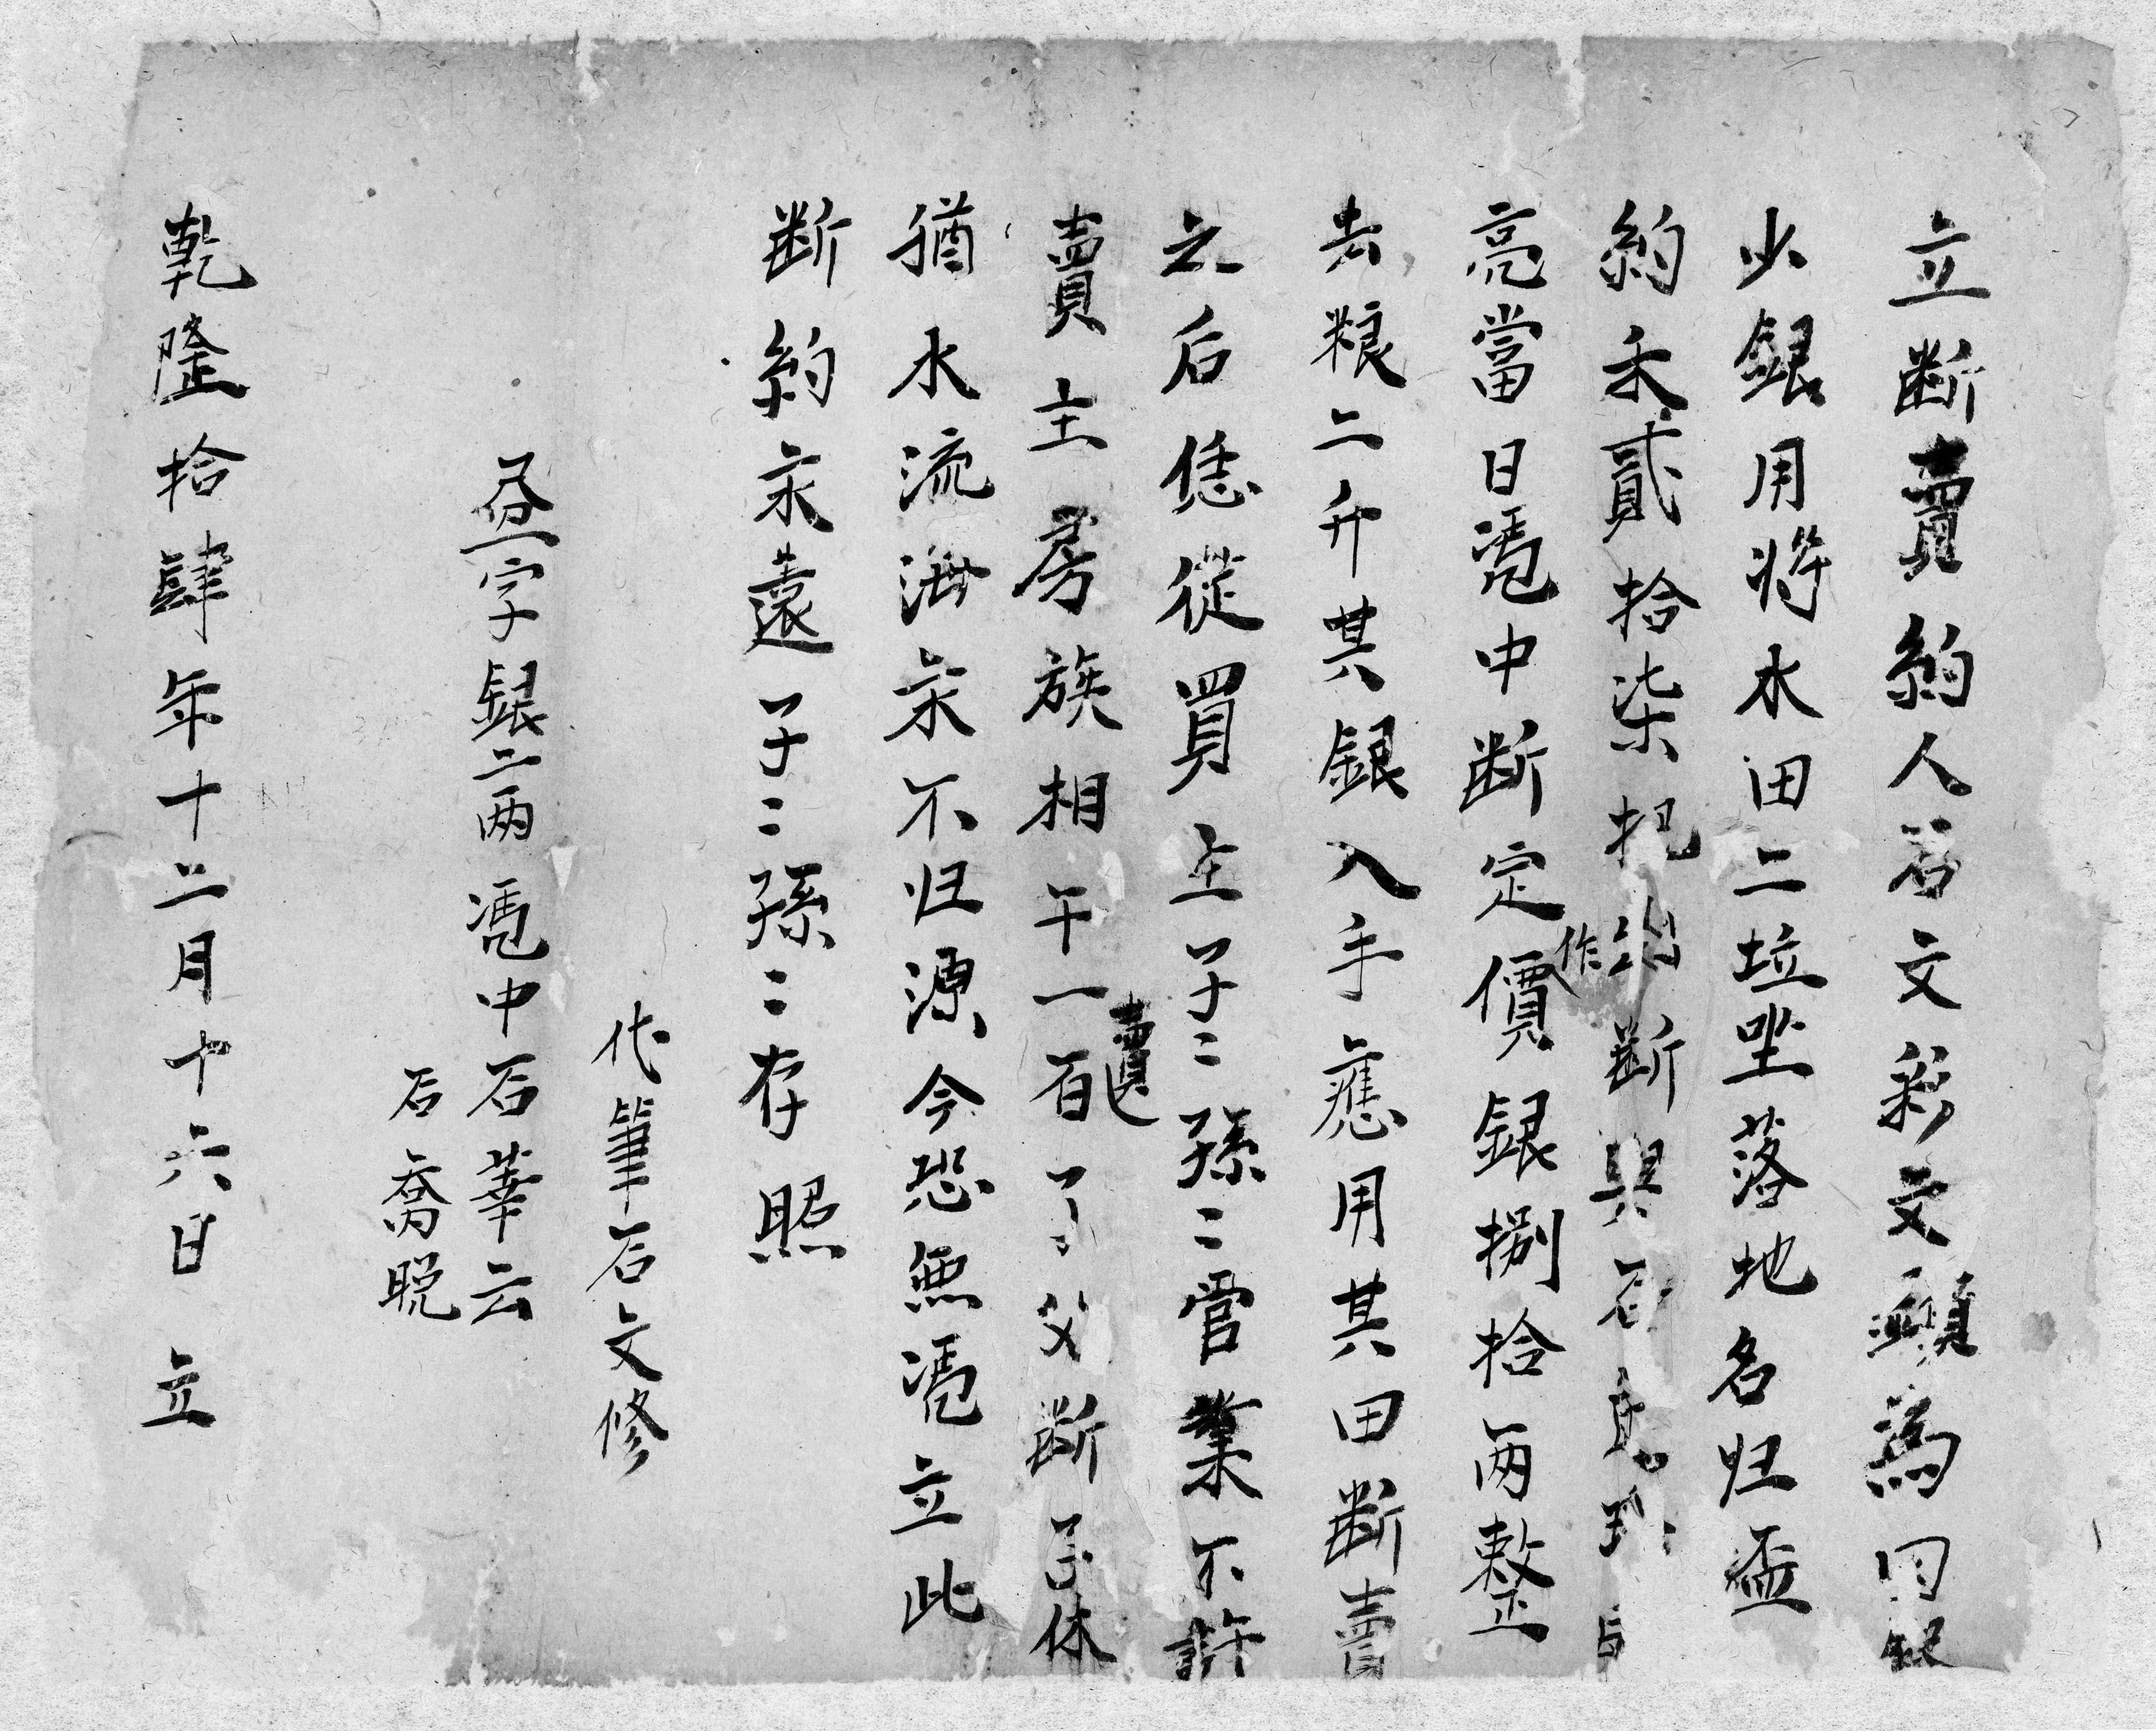 立断賣約人石文彩文顯為因缺
少銀用將水田二坵坐落地名归盃
約禾貳拾柒把出断與石
作
亮當日凴中断定價銀捌拾兩整
去粮二升其銀入手應用其田断賣
之后恁從買主子〻孫〻管業不許
賣主房族相干一賣百了父断子休
猶水流海永不归源今恐無凴立此
断約永遠子〻孫〻存照
代筆石文修
畫字銀二兩 凴中石華云
石喬晚
乾隆拾肆年十二月十六日 立